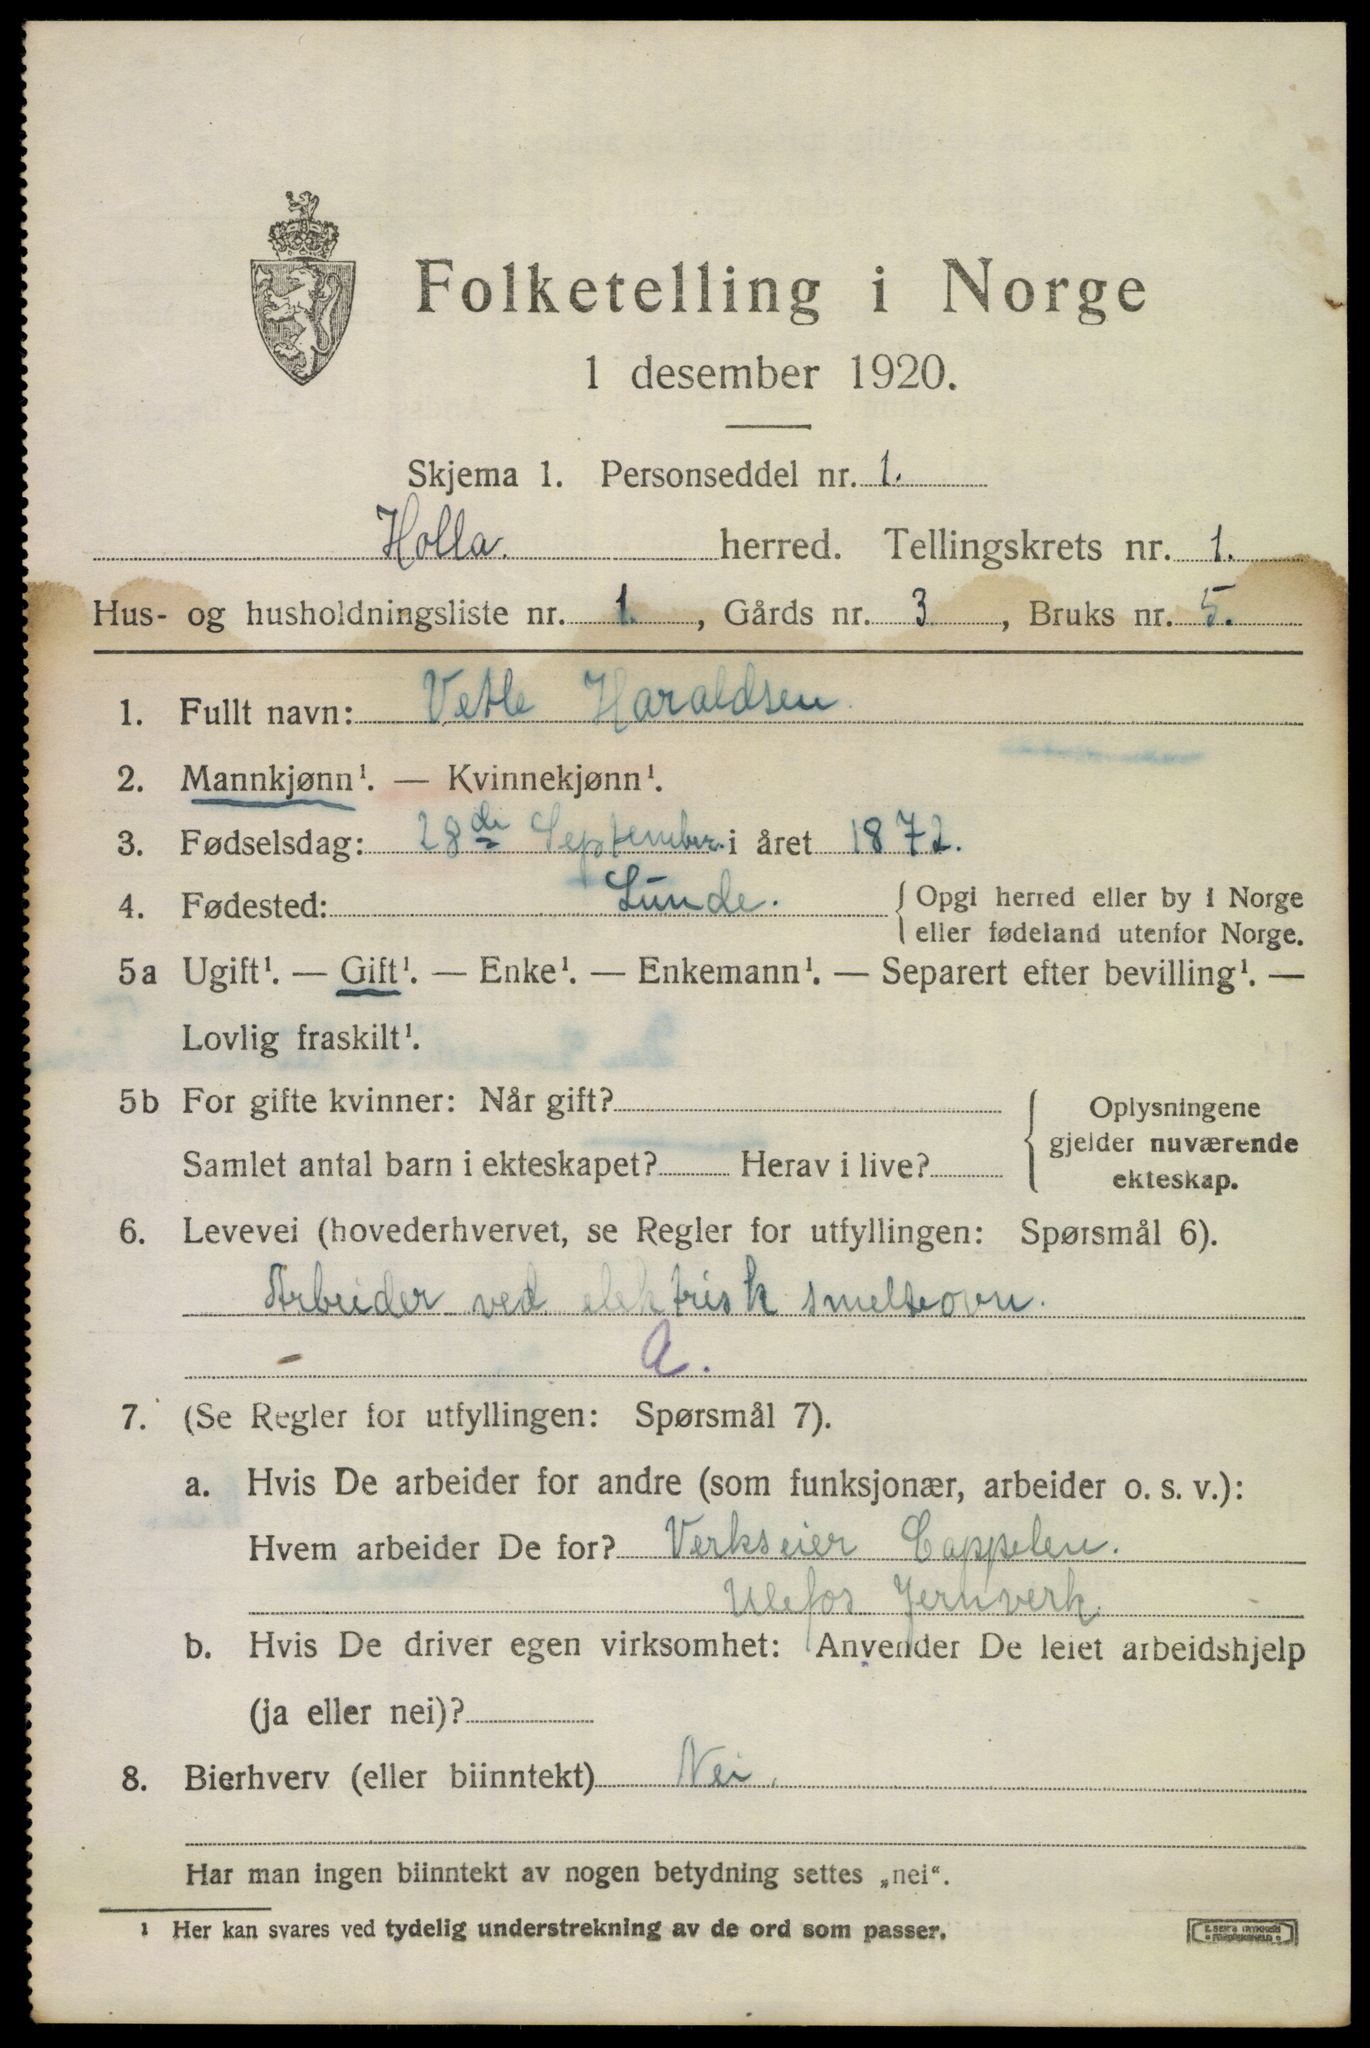 Folketelling i Norge
1 desember 1920.
Skjema 1. Personseddel nr. 1.
Holla. herred. Tellingskrets nr. 1.
Hus- og husholdningsliste nr. 1. , Gårds nr. 3 , Bruks nr. 5.
1. Fullt navn: Vetle Haraldsen
2. Mannkjønn¹. — Kvinnekjønn¹.
3. Fødselsdag: 28de September i året 1872.
4. Fødested: Lunde. { Opgi herred eller by i Norge
eller fødeland utenfor Norge.
5a Ugift¹. — Gift¹. — Enke¹. — Enkemann¹. — Separert efter bevilling¹. —
Lovlig fraskilt¹.
5b For gifte kvinner: Når gift? { Oplysningene
gjelder nuværende
Samlet antal barn i ekteskapet? Herav i live?
ekteskap.
6. Levevei (hovederhvervet, se Regler for utfyllingen: Spørsmål 6).
Arbeider ved elektrisk smelteovn.
A.
7. (Se Regler for utfyllingen: Spørsmål 7).
a. Hvis De arbeider for andre (som funksjonær, arbeider o. s. v.):
Hvem arbeider De for? Verkseier Cappelen.
Ulefos Jernverk.
b. Hvis De driver egen virksomhet: Anvender De leiet arbeidshjelp
(ja eller nei)?
8. Bierhverv (eller biinntekt) Nei.
Har man ingen biinntekt av nogen betydning settes „nei“.
¹ Her kan svares ved tydelig understrekning av de ord som passer.